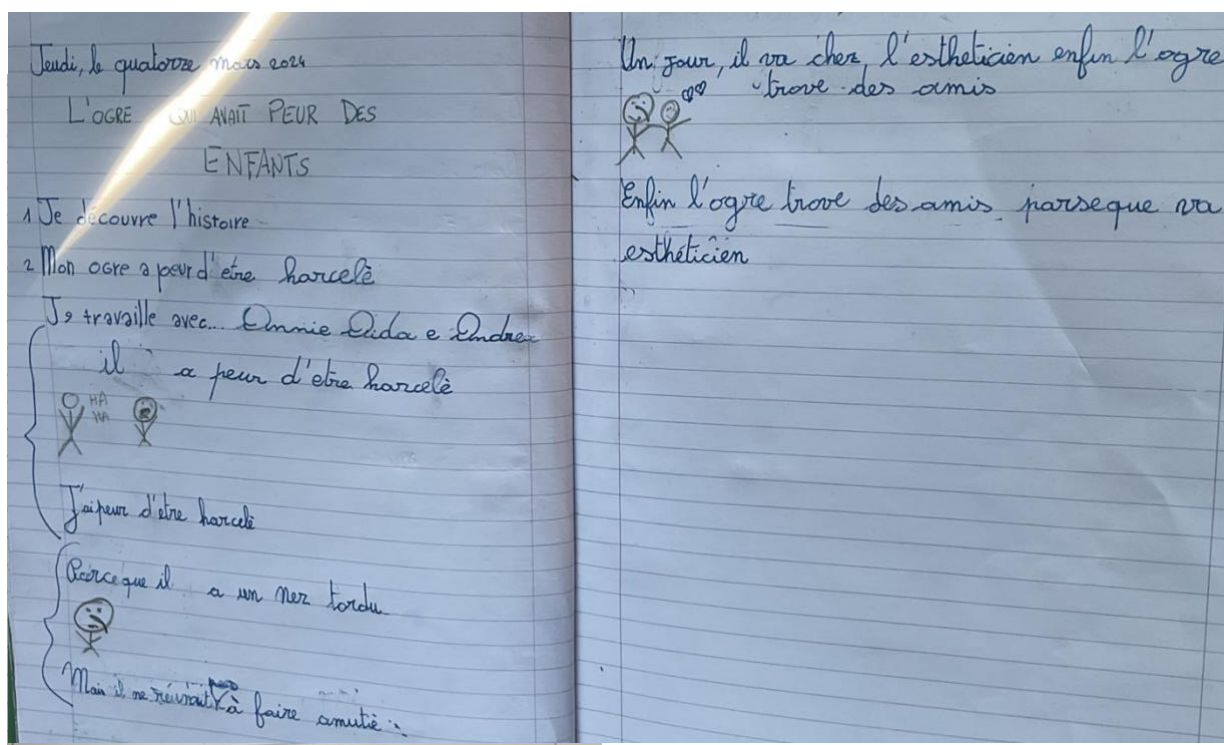 Jeudi, le quatorze mars 2024
L'OGRE QUI AVAIT PEUR DES
ENFANTS
1 Je découvre l'histoire
2 Mon ogre a peur d'etre harcelè
Je travaille avec... Annie Aida e Andrea
il a peur d'etre harcelè
HA
HA
J'ai peur d'etre harcelè
Parce que il a un nez tordu
Mais il ne réussait pas à faire amutiè
Un jour, il va chez l'estheticien enfin l'ogre
trove des amis
Enfin l'ogre trove des amis parseque va
esthéticien